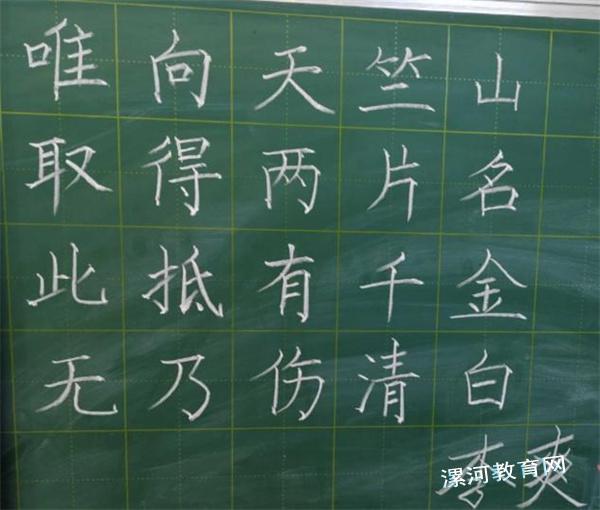 唯向天竺山
取得两片名
此抵有千金
无乃伤清白
李爽
漯河教育网